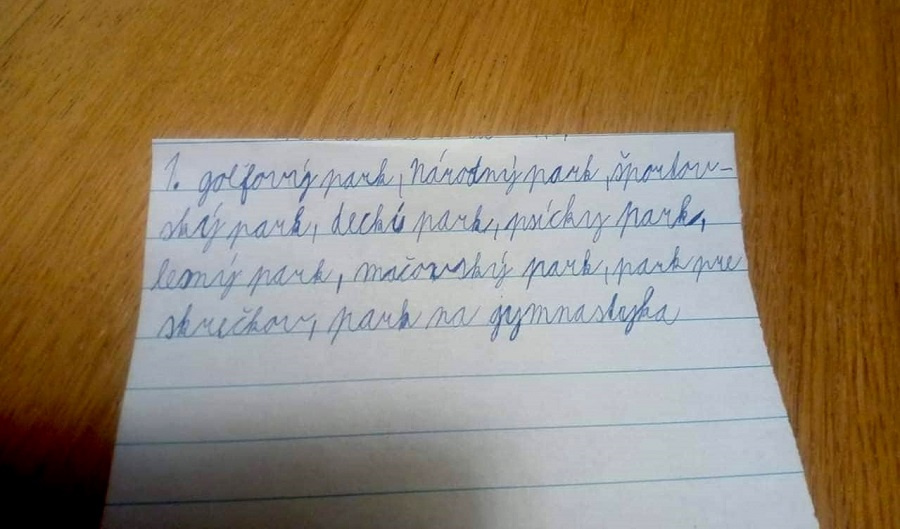 1. golfový park, Národný park, športov-
ský park, decki park, psícky park,
lesný park, mačovský park, park pre
skrečkov, park na gymnastyka